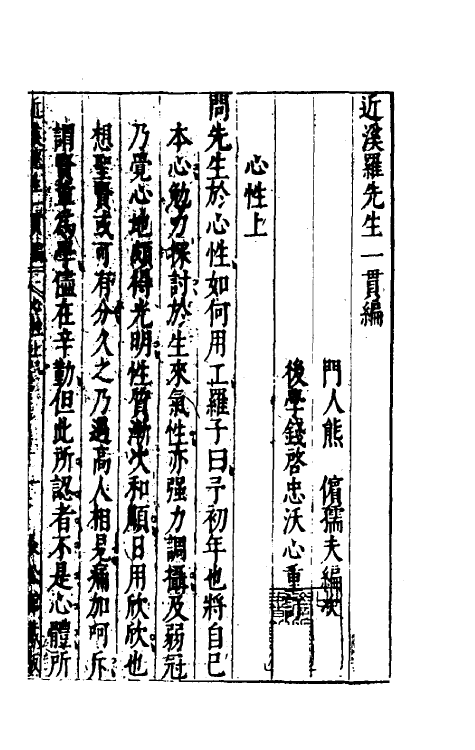 近溪羅先生一貫編
門人熊 儐孺夫編次
後學錢啓忠沃心重訂
心性上
問先生於心性如何用工羅子曰予初年也將自己
本心勉力探討於生來氣性亦强力調攝及弱冠
乃覺心地頗得光明性質漸次和順日用欣欣也
想聖賢或可有分久之乃遇高人相見痛加呵斥
謂賢輩爲學儘在辛勤但此所認者不是心體所